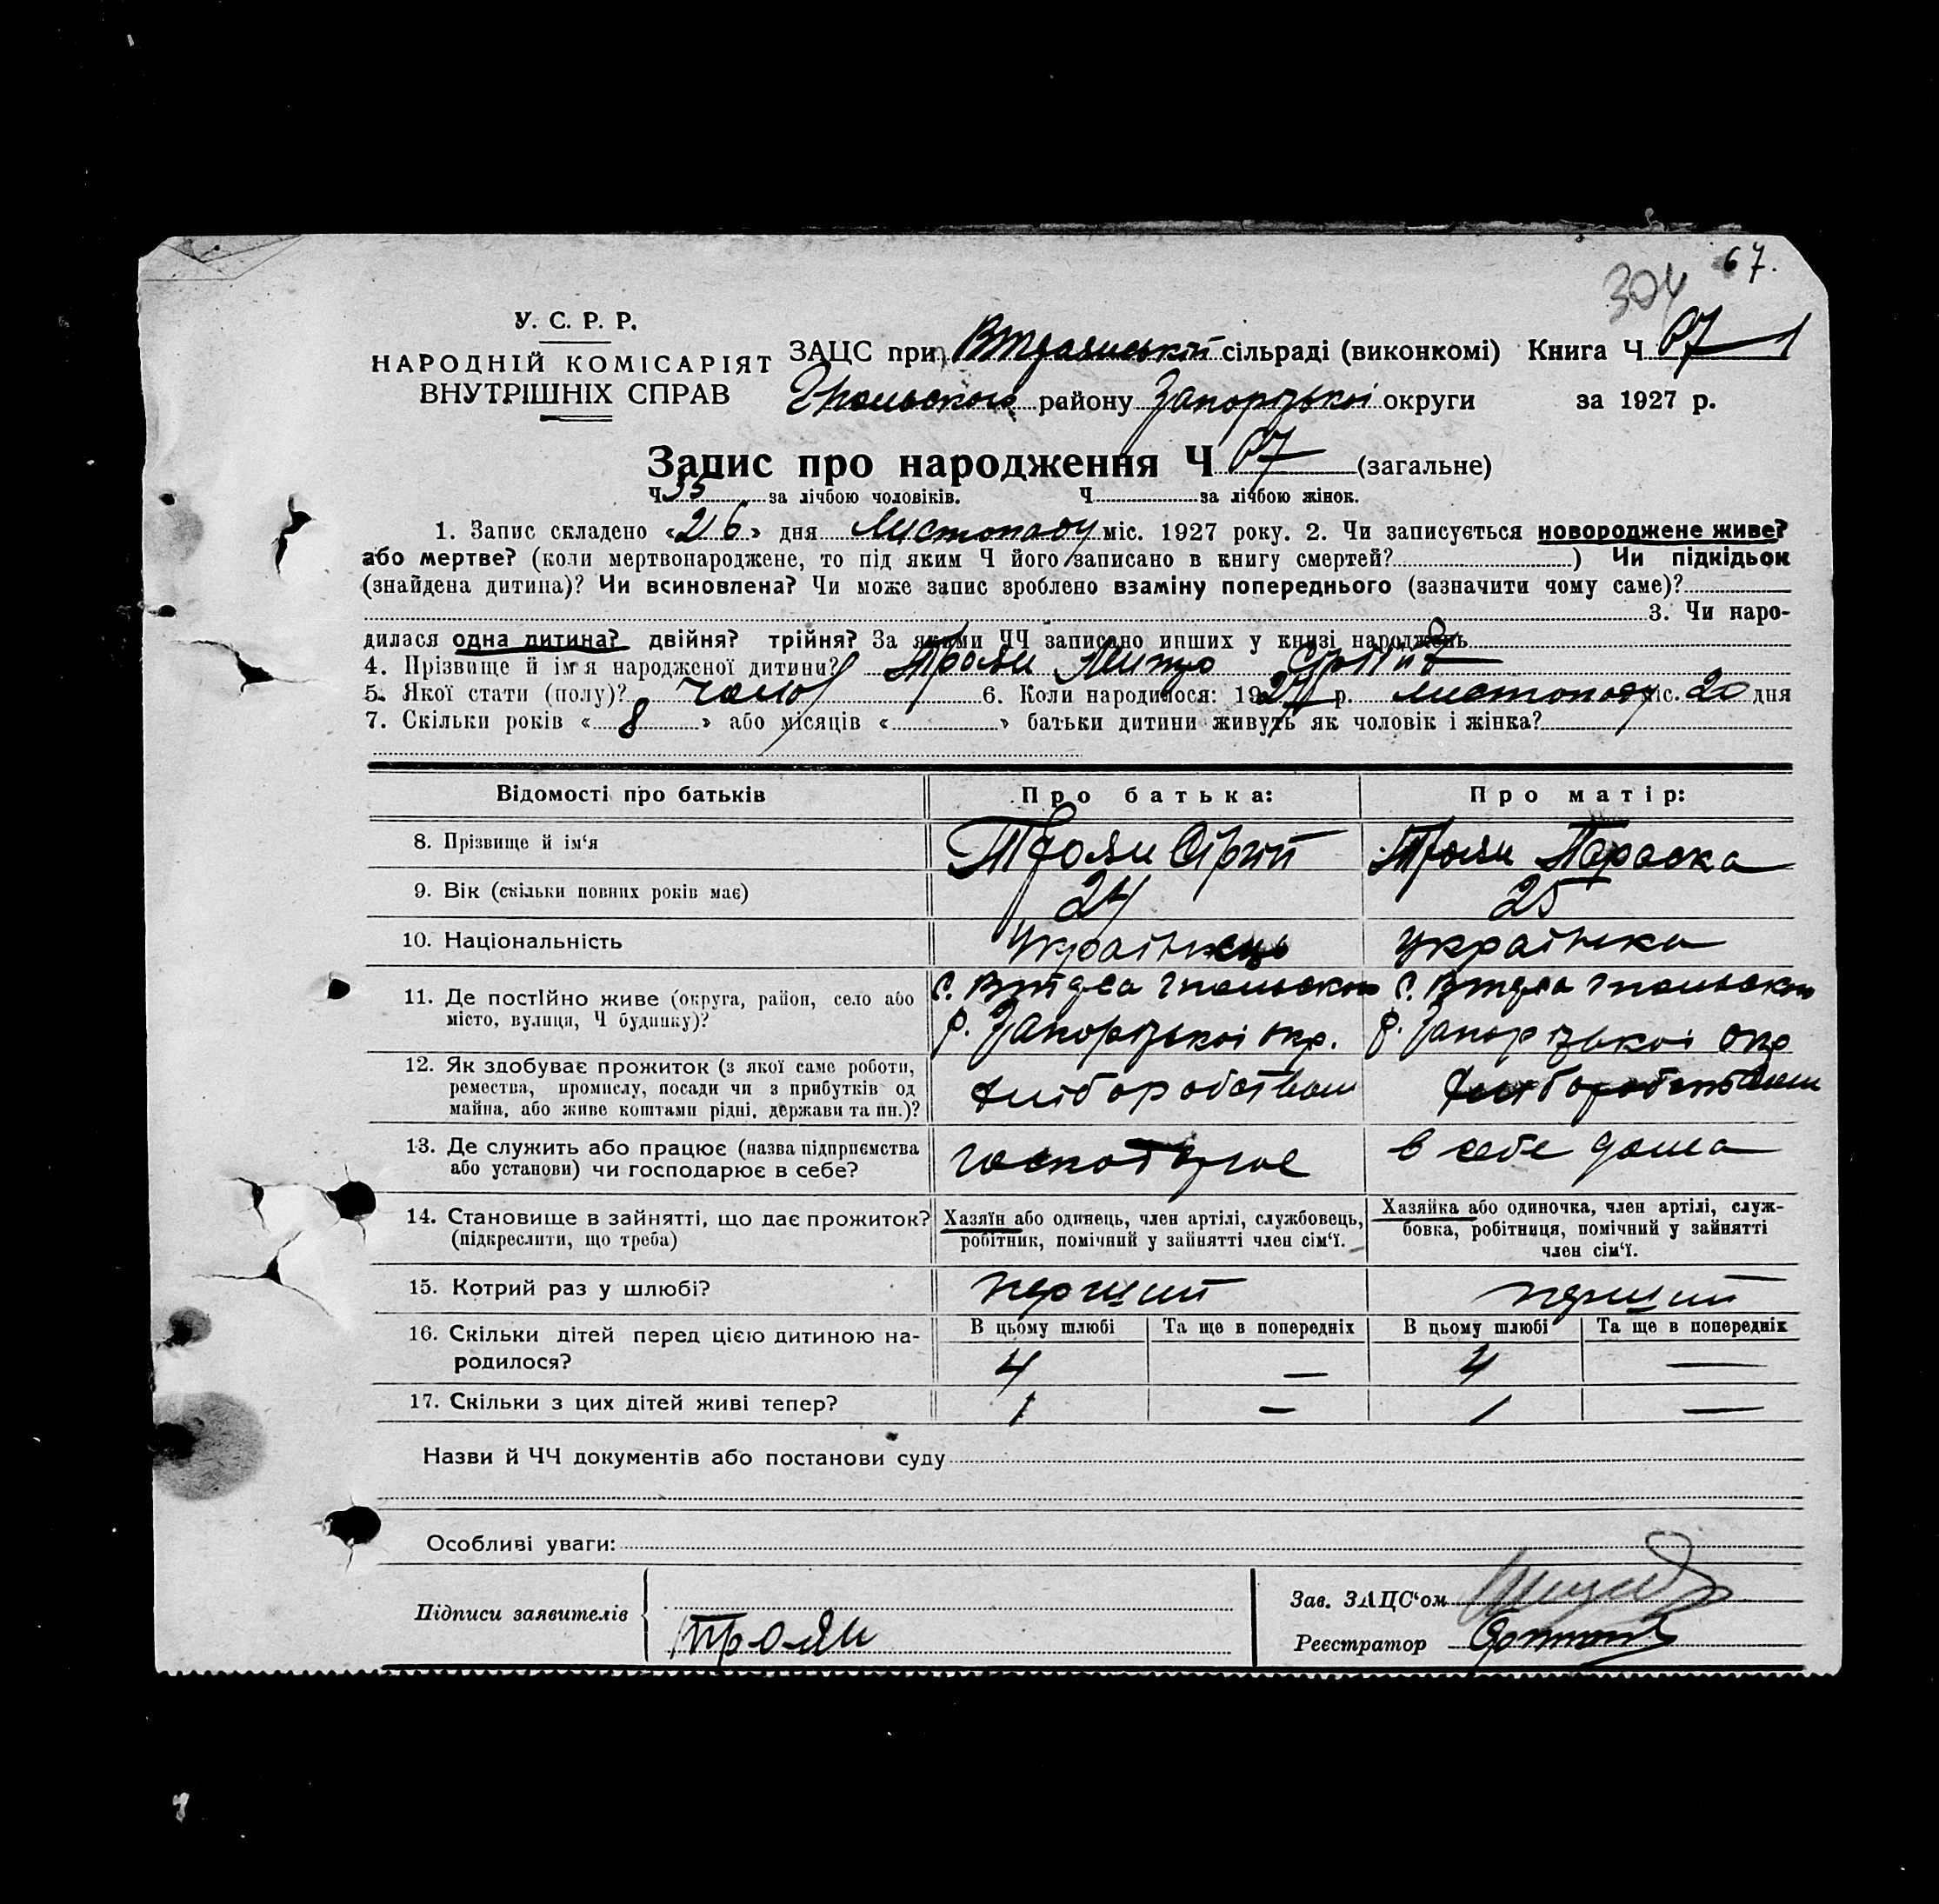 67.
304
У. С. Р. Р.
НАРОДНІЙ КОМІСАРІЯТ
ВНУТРІШНІХ СПРАВ
ЗАЦС при сільраді (виконкомі) Книга Ч 67
району Запорізької округи за 1927 р.
Запис про народження Ч 67 (загальне)
Ч 35 за лічбою чоловіків. Ч за лічбою жінок.
1. Запис складено «26» дня Листопаду міс. 1927 року. 2. Чи записується новороджене живе?
або мертве? (коли мертвонароджене, то під яким Ч його записано в книгу смертей? ) Чи підкідьок
(знайдена дитина)? Чи всиновлена? Чи може запис зроблено взаміну попереднього (зазначити чому саме)?
3. Чи наро-
дилася одна дитина? двійня? трійня? За якими ЧЧ записано инших у книзі народжень
4. Прізвище й ім'я народженої дитини? Троян
5. Якої стати (полу)? чолов 6. Коли народилося: 1927 р. листопаду міс. 20 дня
7. Скільки років «8» або місяців « » батьки дитини живуть як чоловік і жінка?
Відомості про батьків Про батька: Про матір:
8. Прізвище й ім'я Троян Сіргій Троян Параска
9. Вік (скільки повних років має) 24 25
10. Національність Українець Українка
11. Де постІйно живе (округа, район, село або
місто, вулиця, Ч будинку)?
р. Запорізької окр. р. Запорізької окр
12. Як здобуває прожиток (з якої саме роботи,
ремества, промислу, посади чи з прибутків од
майна, або живе коштами рідні, держави та ин.)?
хліборобством хліборобством
13. Де служить або працює (назва підприємства
або установи) чи господарює в себе?
в себе дома
14. Становище в зайнятті, що дає прожиток?
(підкреслити, що треба)
Хазяїн або одинець, член артілі, службовець,
робітник, помічний у зайнятті член сім'ї.
Хазяйка або одиночка, член артілі, служ-
бовка, робітниця, помічний у зайнятті
член сім'ї.
15. Котрий раз у шлюбі? перший перший
16. Скільки дітей перед цією дитиною на-
родилося?
В цьому шлюбі Та ще в попередніх В цьому шлюбі Та ще в попередніх
4 — 4 —
17. Скільки з цих дітей живі тепер? 1 — 1 —
Назви й ЧЧ документів або постанови суду
Особливі уваги:
Підписи заявителів
Троян
Зав. ЗАЦС'ом
Реєстратор